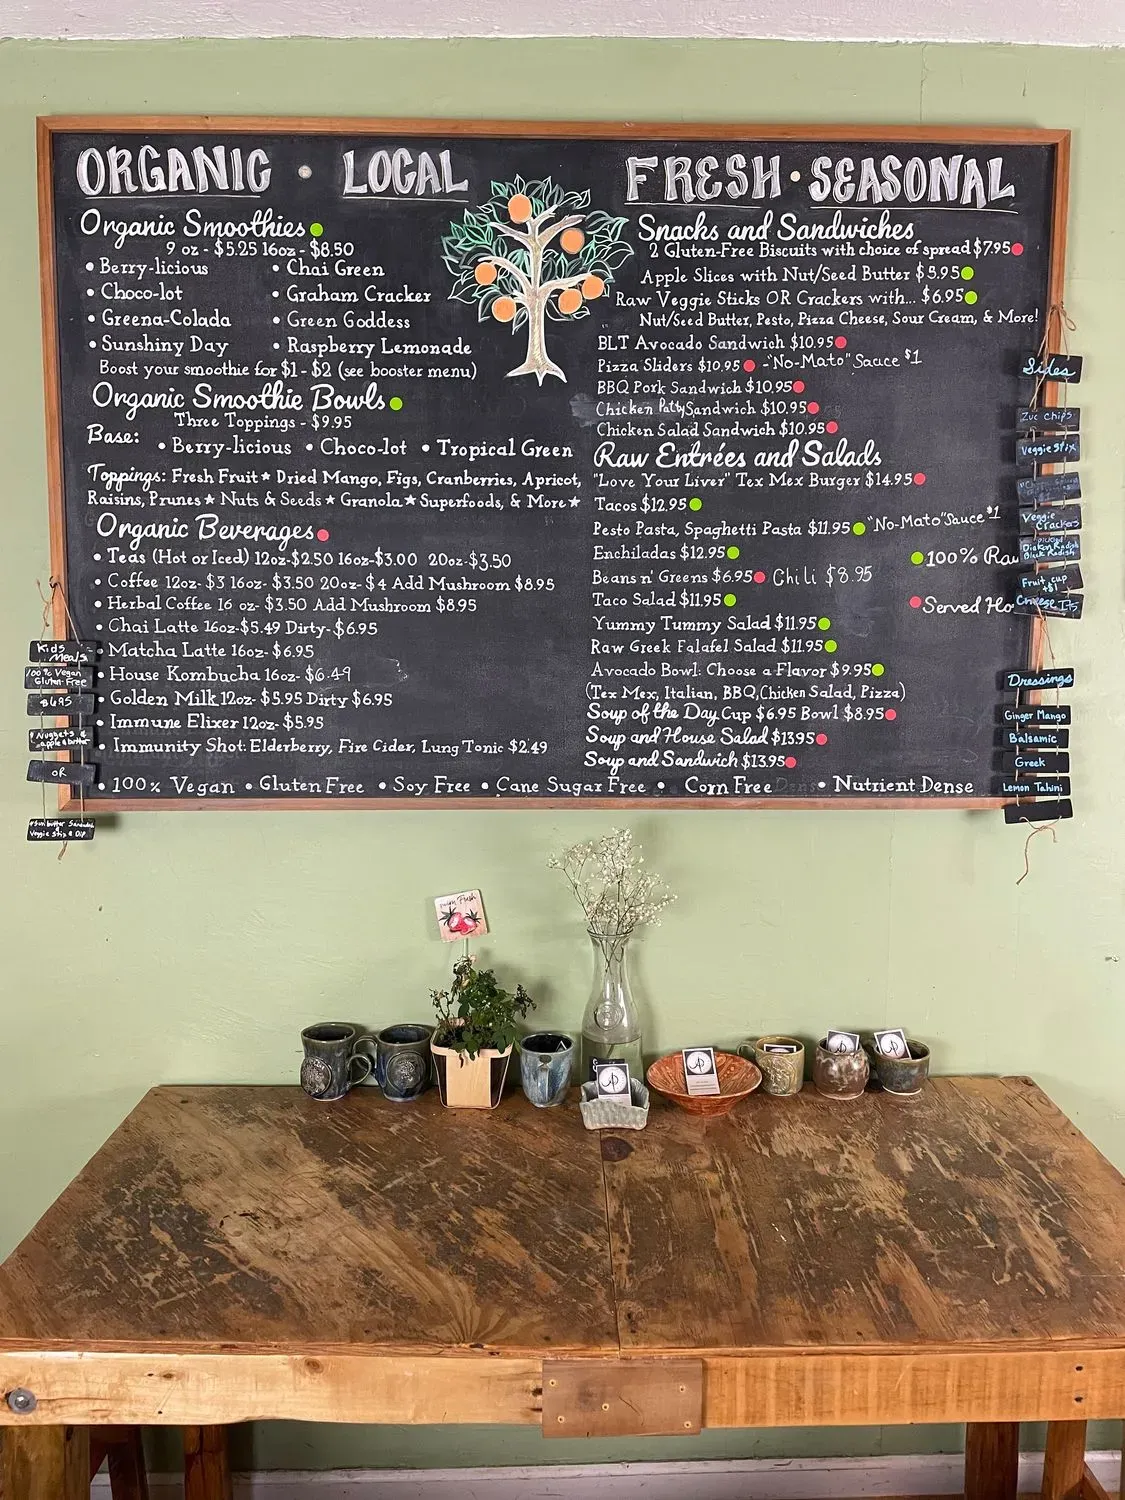 ORGANIC • LOCAL
Organic Smoothies
9 oz - $5.25 16oz - $8.50
• Berry-licious
• Choco-lot
• Greena-Colada
• Sunshiny Day
• Chai Green
• Graham Cracker
• Green Goddess
• Raspberry Lemonade
Boost your smoothie for $1 - $2 (see booster menu)
Organic Smoothie Bowls
Three Toppings - $9.95
Base: • Berry-licious • Choco-lot • Tropical Green
Toppings: Fresh Fruit ★ Dried Mango, Figs, Cranberries, Apricot,
Raisins, Prunes ★ Nuts & Seeds ★ Granola ★ Superfoods, & More ★
Organic Beverages
• Teas (Hot or Iced) 12oz-$2.50 16oz-$3.00 20oz-$3.50
• Coffee 12oz- $3 16oz- $3.50 20oz- $4 Add Mushroom $8.95
• Herbal Coffee 16 oz- $3.50 Add Mushroom $8.95
• Chai Latte 16oz-$5.49 Dirty-$6.95
• Matcha Latte 16oz- $6.95
• House Kombucha 16oz- $6.49
• Golden Milk 12oz- $5.95 Dirty $6.95
• Immune Elixer 12oz- $5.95
• Immunity Shot: Elderberry, Fire Cider, Lung Tonic $2.49
FRESH • SEASONAL
Snacks and Sandwiches
2 Gluten-Free Biscuits with choice of spread $7.95
Apple Slices with Nut/Seed Butter $5.95
Raw Veggie Sticks OR Crackers with... $6.95
Nut/Seed Butter, Pesto, Pizza Cheese, Sour Cream, & More!
BLT Avocado Sandwich $10.95
Pizza Sliders $10.95 - "No-Mato" Sauce $1
BBQ Pork Sandwich $10.95
Chicken Patty Sandwich $10.95
Chicken Salad Sandwich $10.95
Raw Entrées and Salads
"Love Your Liver" Tex Mex Burger $14.95
Tacos $12.95
Pesto Pasta, Spaghetti Pasta $11.95 "No-Mato" Sauce $1
Enchiladas $12.95
100% Raw
Beans n' Greens $6.95 Chili $8.95
Taco Salad $11.95
Served Ho
Yummy Tummy Salad $11.95
Raw Greek Falafel Salad $11.95
Avocado Bowl: Choose a Flavor $9.95
(Tex Mex, Italian, BBQ, Chicken Salad, Pizza)
Soup of the Day Cup $6.95 Bowl $8.95
Soup and House Salad $13.95
Soup and Sandwich $13.95
• 100% Vegan • Gluten Free • Soy Free • Cane Sugar Free • Corn Free • Nutrient Dense
Kids Meals
100% Vegan
Gluten-Free
$6.95
Nuggets &
apple & butter
OR
Veggie Stix & Dip
Sides
Zuc Chips
Veggie Stix
Veggie
Crackers
Pickled
Daikon Radish
Black Radish
Fruit cup
+$1
Cheese Its
Dressings
Ginger Mango
Balsamic
Greek
Lemon Tahini